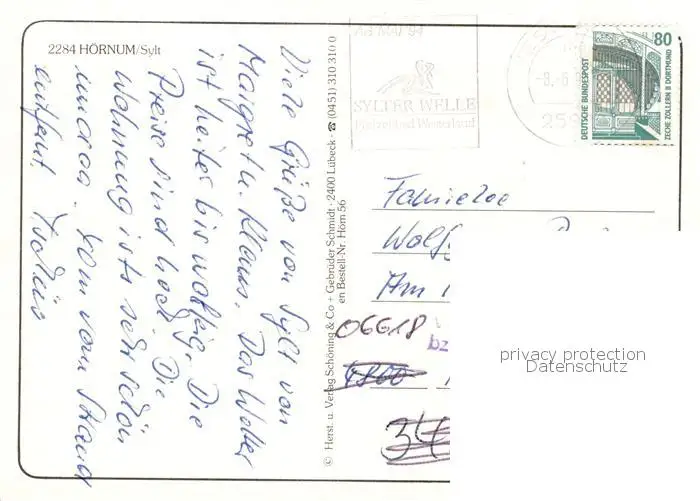 2284 HÖRNUM/Sylt
Viele Grüße von Sylt von
Margret u. Klaus. Das Wetter
ist heiter bis wolkig. Die
Preise sind hoch. Die
Wohnung ist sehr schön
und ca. 70m vom Strand
entfernt.
© Herst. u. Verlag Schöning & Co + Gebrüder Schmidt · 2400 Lübeck · ☎ (0451) 310 310 0
en Bestell-Nr. Hörn 56
AB MAI 94
SYLTER WELLE
80
DEUTSCHE BUNDESPOST
ZECHE ZOLLERN II DORTMUND
Familie
Wolf
Am
06618
bz
privacy protection
Datenschutz